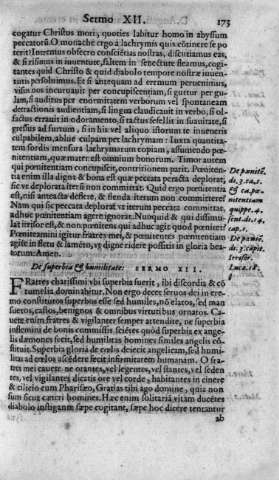 Sermo XII.
175
cogatur Christus mori, quoties labitur homo in abyssum
peccatorũ. O monache ergo à lachrymis quis cõtinere se po
terit? Inuemus obsecro conscietias nostras, discutiamus eas,
& si risimus in iuuentute, saltem in senectute fleamus, cogi-
tantes quid Christo & quid diabolo tempore nostræ iuuen-
tutis persoluimus. Et si intrequam ad errorum peruenimus,
visus nos incuruauit per concupiscentiam, si gustus per gu-
lam, si auditus per enormitatem verborum vel spontaneam
detractionum audientiam, si lingua claudicauit in verbo, si ol-
factus errauit in odoramento, si tactus fefellit in suauitate, si
gressus ad furtum, si in his vel aliquo istorum te inueneris
culpabilem, ablue culpam per lachrymam: Iuxta quantita-
tem sordis mensura lachrymarum copiam, assumendo pœ-
nitentiam, quæ mater est omnium bonorum. Timor autem
qui pœnitentiam concupiscit, contritionem parit. Pœniten-
tia enim illa digna & bona est quæ peccata peracta deplorat,
se ve deplorata iterū non committat. Quid ergo pœnitentia
est, nisi anteacta deflere, & flenda iterum non committere?
Nam qui sic peccata deplorat vt iterum peccata committat,
adhuc pœnitentiam agere ignorat. Nunquid & qui dissimu-
lat irrisor est, & non pœnitens qui adhuc agit quod pœnitet?
Pœniteamini igitur fratres mei, & pœnitentes pœnitentiam
agite in fletu & lamēto, vt digne ridere possitis in gloria bea-
torum. Amen.
De pœnitē.
de, 3. ca. 1.
& ca. pœ
nitentium
quippe. 4.
sent. di. 14.
cap. 1.
De pœnitē.
di. 3. capit.
Irrisor.
Luca. 18.
De superbia & humilitate: SERMO XII.
FRatres charissimi vbi superbia fuerit, ibi discordia & cõ
tumelia dominabitur. Non ergo decet seruos dei in ere-
mo constitutos superbos esse sed humiles, nõ elatos, sed man
suetos, castos, benignos & omnibus virtutibus ornatos. Ca-
uete enim fratres & vigilanter semper attendite, ne superbia
inseminet de bonis commissis scietes quod superbia ex ange-
lis dæmones fecit, sed humilitas homines similes angelis cō-
stituit. Superbia gloria de cœlis deiecit angelicam, sed humi-
litas ad cœlos ascēdere fecit infirmitatem humanam. O fra-
tres mei cauete ne orantes, vel legentes, vel stantes, vel seden
tes, vel vigilantes dicatis ore vel corde, habitantes in cinere
& cilicio cum Pharisæo, Gratias tibi ago domine, quia non
sum sicut cæteri homines. Hæc enim solitariā vitam ducētes
diabolo instigante sæpe cogitant, sæpe hoc dicere tentantur
ab